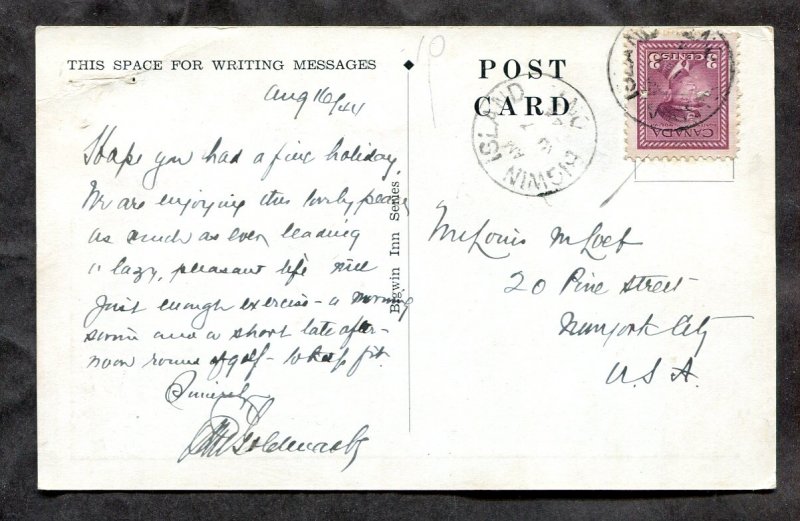 THIS SPACE FOR WRITING MESSAGES
Aug 16/44
Hope you had a fine holiday.
We are enjoying this lovely place
as much as ever, leading
a lazy, pleasant life with
just enough exercise - a morning
swim and a short late after-
noon round of golf - to keep fit.
Sincerely
Bigwin Inn Series
10
POST
CARD
BIGWIN INN
ISLAND
AM
CANADA
3 CENTS 3
ISLAND
Mr Louis M Loeb
20 Pine Street
New York City
U.S.A.